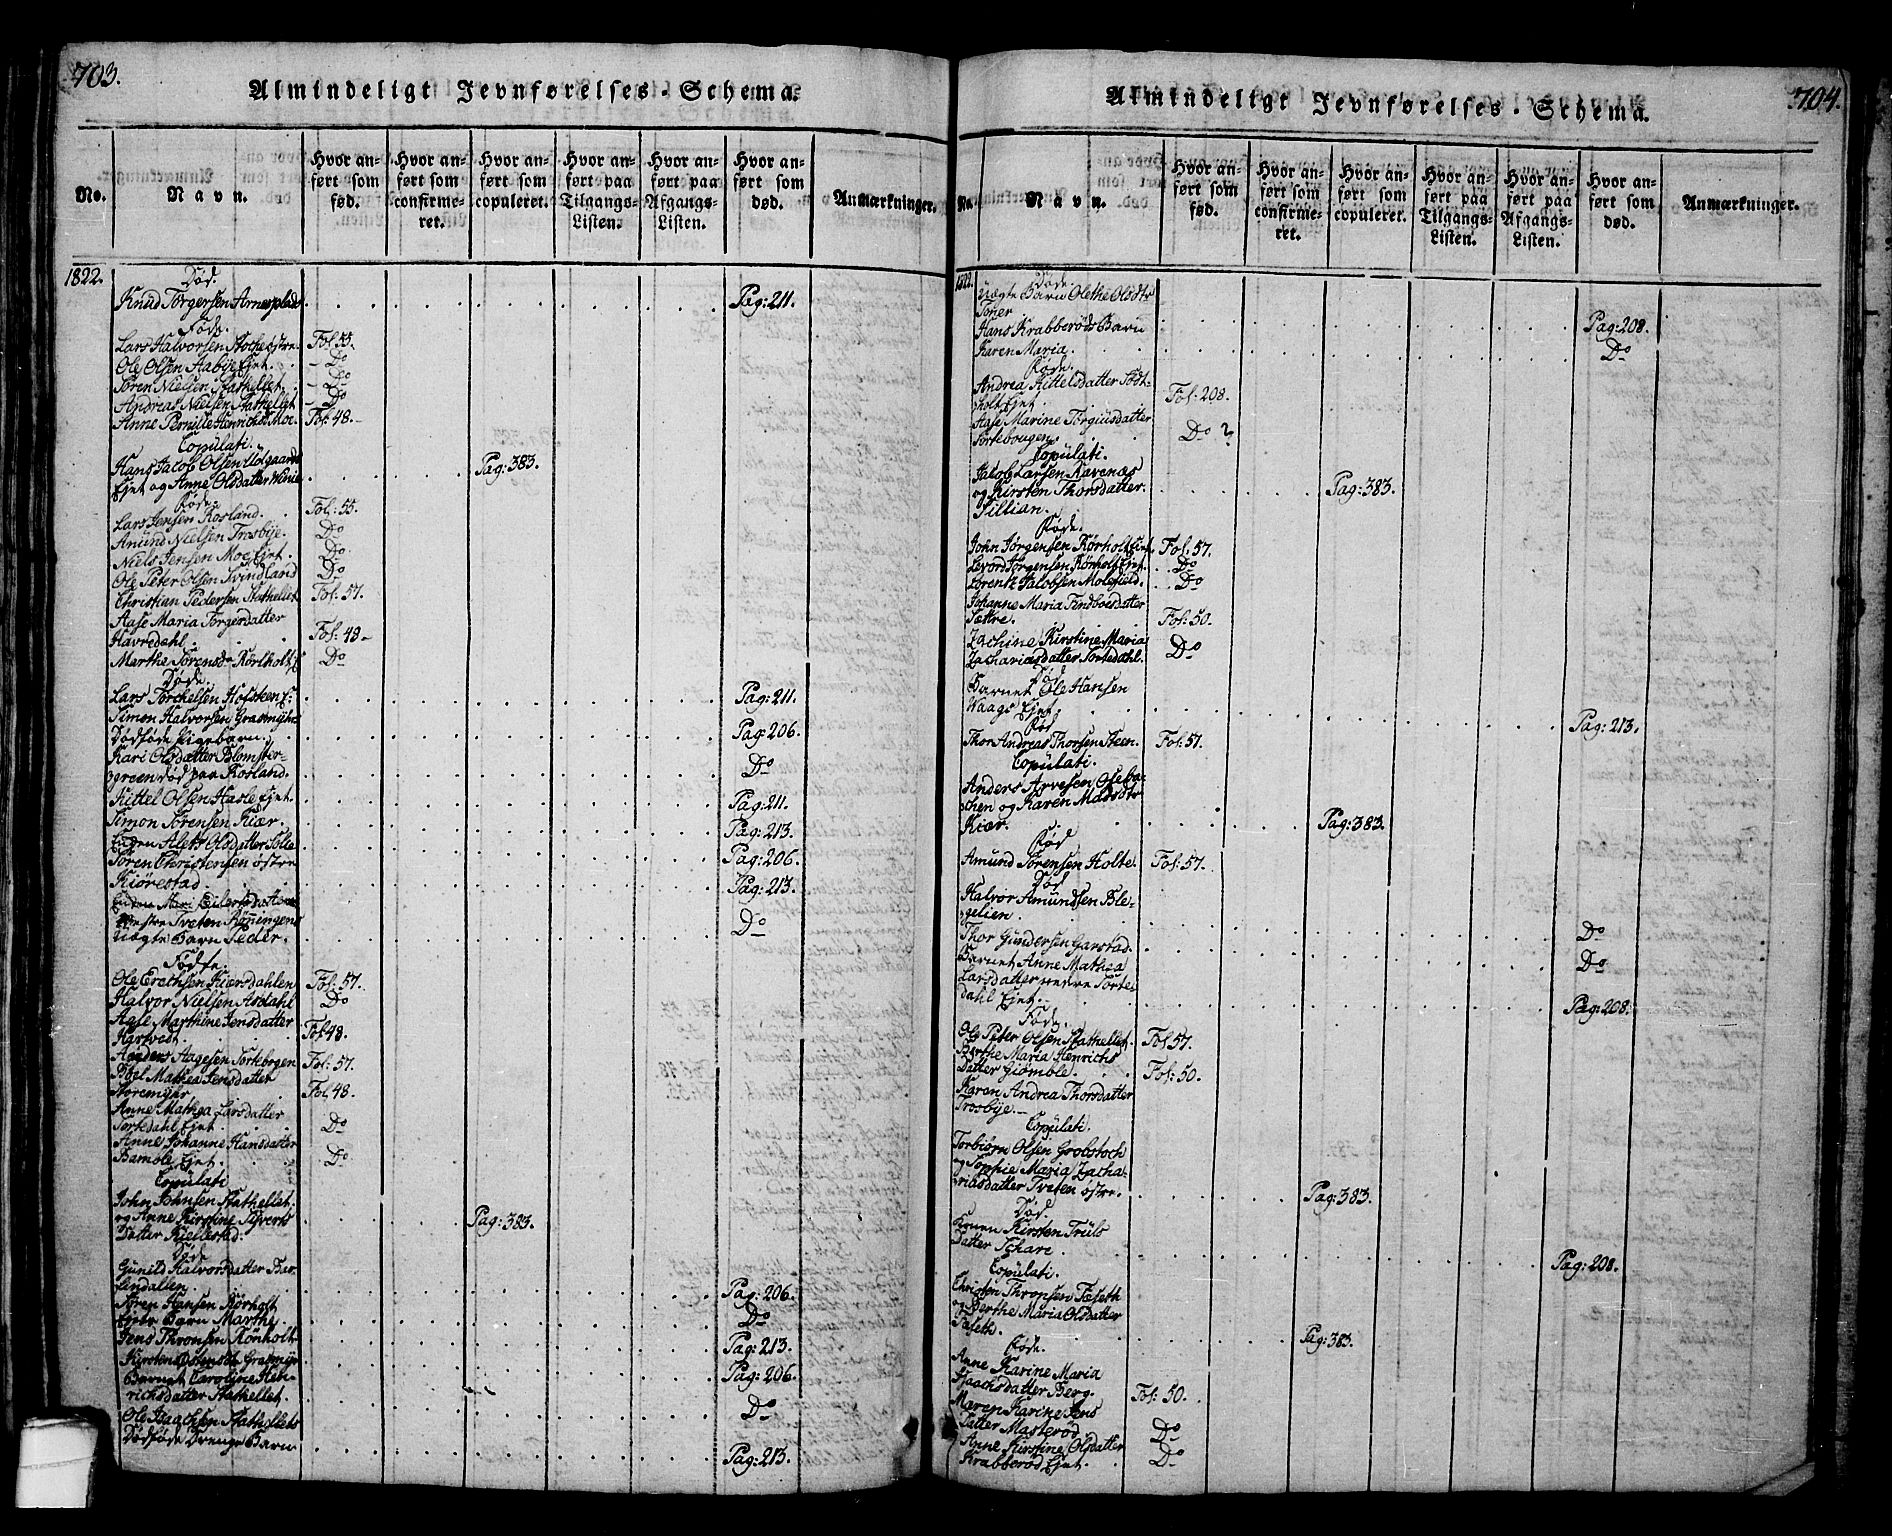 703.
Almindeligt Jevnførelses-Schema.
No.
Navn.
Hvor anført som fød.
Hvor anført som confirmeret.
Hvor anført som copuleret.
Hvor anført paa Tilgangs-Listen.
Hvor anført paa Afgangs-Listen.
Hvor anført som død.
Anmærkninger.
1822.
Død.
Knud Torgersen Arnesplads Pag: 211.
Føde.
Lars Halvorsen Stochostre. Fol: 55.
Ole Olsen Aabye Ejet. Do
Søren Nielsen Stathellet. Do
Andreas Nielsen Stathellet Do
Anne Pernille Henrichsd Moe. Fol: 48.
Copulati.
Hans Jacob Olsen Udgaarde
Ejet og Anne Olsdatter Pag: 383.
Føde.
Lars Jensen Rosland. Fol: 55.
Amund Nielsen Trosbye. Do
Niels Jensen Moe Ejet. Do
Ole Peter Olsen Svindland Do
Christian Pedersen Stathellet Fol: 57.
Aase Maria Torgersdatter
Havredahl. Fol: 48
Marthe Sørensdr Rørholt Do
Døde.
Lars Torchelsen Hofsken E: Pag: 211.
Simon Halvorsen Grasmyhr
Dødføde Pigebarn. Pag: 206.
Kari Olsdatter Blomster-
green død paa Rosland. Do
Kittel Olsen Hasle Ejet. Pag: 211.
Simon Sørensen Kiær. Pag: 213.
Enken Alets Olsdatter Pag: 206.
Søren Christensen østre
Kiørestad. Pag: 213.
Enken Mari Eilertsdatter
Vestre Tveten Rønningens
Uægte Barn Peder. Do
Fødte.
Ole Erichsen Kiærsdahlen Fol: 57.
Halvor Nielsen Asdahl Do
Aase Marthine Jensdatter
Hartvedt. Fol: 48.
Anders Aagesen Sortebogen Fol: 57.
Boel Mathea Jensdatter
Storemyhr, Fol. 48.
Anne Mathea Larsdatter
Sortedahl Ejet. Do
Anne Johanne Hansdatter
Bamble Ejet. Do
Copulati
John Johnsen Stathellet.
og Anne Kirstine Syverts
Datter Kiellestad. Pag: 383.
Døde
Gunild Halvorsdatter Bar-
lindallen. Pag: 206.
Søren Hansen Rørholt
Ejets Barn Marthe Do
Jens Thronsen Rønholt Pag: 213.
Kirsten Grasmyr Pag: 206.
Barnet Caroline Hen-
richsdatter Stathellet Do
Ole Isaachsen Stathellets
Dødføde Drenge Barn Pag: 213.
704.
Almindeligt Jevnførelses-Schema.
No.
Navn.
Hvor anført som fød.
Hvor anført som confirmeret.
Hvor anført som copuleret.
Hvor anført paa Tilgangs-Listen.
Hvor anført paa Afgangs-Listen.
Hvor anført som død.
Anmærkninger.
1822.
Døde.
Uægte Barn Olethe Olsdtr
Toner Pag: 208.
Hans Krabberøds Barn
Karen Maria. Do
Føde.
Andrea Kittelsdatter Sødt-
holt Ejet. Fol: 208.
Aase Marine Torgiusdatter
Sortebougen. Do ?
Copulati.
Jacob Larsen Ravenæs
og Kirsten Thorsdatter.
Tillian. Pag: 383.
Føde.
John Jørgensen Rørholt Ejet Fol: 57.
Levord Jørgensen Rønholt Ejet. Do
Lorentz Jacobsen Molefield. Do
Johanne Maria Findboesdatter
Sættre. Fol: 50.
Zachine Kirstine Maria
Zachariasdatter Sortedahl. Do
Død
Barnet Ole Hansen
Waags Ejet. Pag: 213.
Fød
Thor Andreas Thorsen Steen. Fol: 57.
Copulati.
Anders Arvesen Oseba-
chen og Karen Madsdtr
Kiær. Pag: 383.
Fød
Amund Sørensen Holte. Fol: 57.
Død
Halvor Amundsen Ble-
gelien. Do
Thor Gundersen Garstad. Do
Barnet Anne Mathea
Larsdatter Sorte-
dahl Ejet. Pag: 208.
Føde.
Ole Peter Olsen Stathellet. Fol 57.
Berthe Maria Henrichs
Datter Giømble. Fol: 50.
Karen Andrea Thorsdatter
Trosbye.
Copulati.
Torbiørn Olsen Grobstoch
og Sophie Maria Zacha-
riasdatter Tveten østre. Pag: 383.
Død.
Konen Kirsten Truls
Datter Pag: 208.
Copulati.
Christen Thronsen Fæseth
og Berthe Maria Olsdatter
Fæseth. Pag: 383.
Føde.
Anne Karine Maria
Isaachsdatter Berg. Fol: 50.
Maren Karine Jens
Datter Masterød Do
Anne Kirstine Olsdatter
Krabberød Ejet. Do